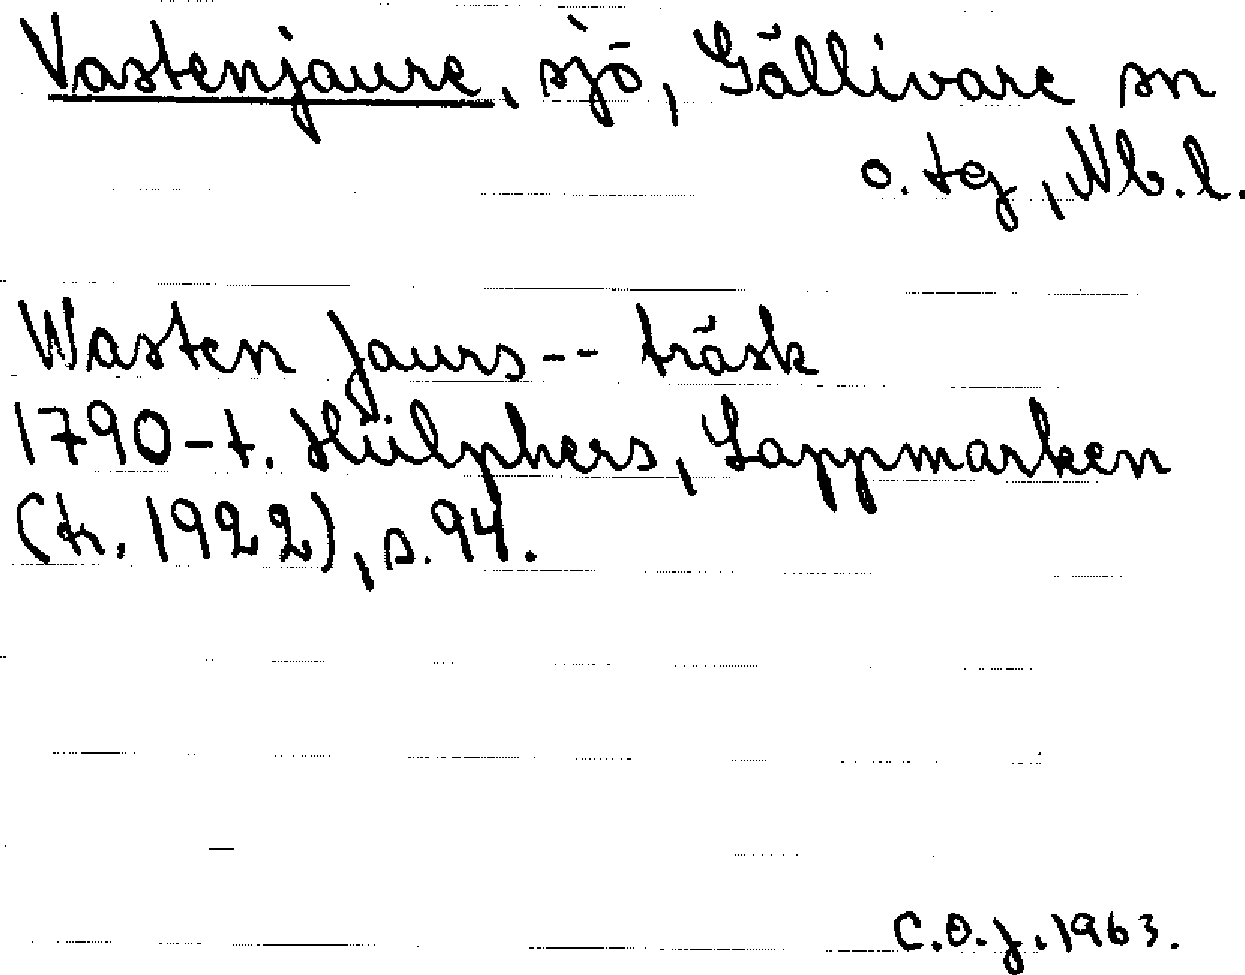 Vastenjaure, sjö, Gällivare sn
o. tg, Nb.l.
Wasten Jaurs-- träsk
1790-t. Hülphers, Lappmarken
(tr. 1922), s. 94.
C.O.J. 1963.